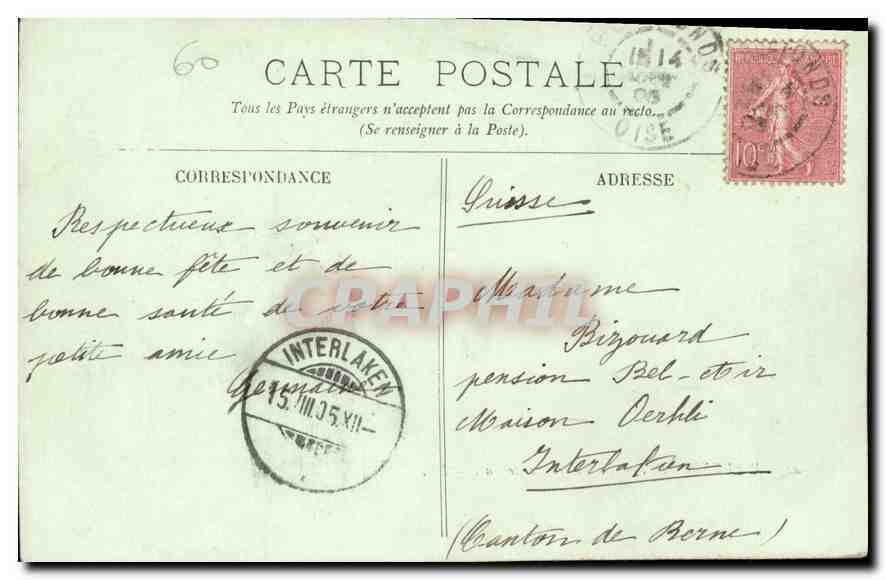 60
CARTE POSTALE
Tous les Pays étrangers n'acceptent pas la Correspondance au recto...
(Se renseigner à la Poste).
CORRESPONDANCE
ADRESSE
Respectueux souvenir
de bonne fête et de
bonne santé de votre
petite amie
Germain
Suisse
Madame
Bizouard
pension Bel-Air
Maison Oerhli
Interlaken
(Canton de Berne)
INTERLAKEN
15.VIII.05.XII-
14
OISE
10c
CPAPHIL